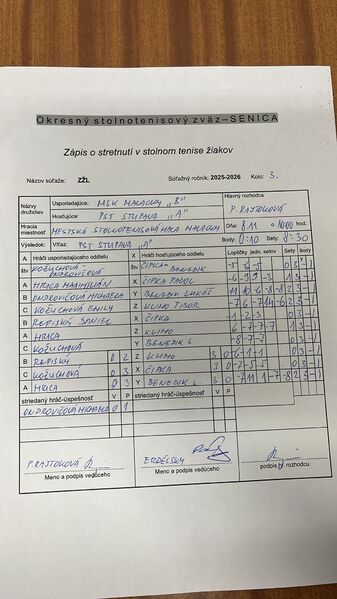 Okresný stolnotenisový zväz–SENICA
Zápis o stretnutí v stolnom tenise žiakov
Názov súťaže: ZŽL Súťažný ročník: 2025-2026 Kolo: 3.
Názvy družstiev
Usporiadajúce: MSK MALACKY „B"
Hosťujúce: PST STUPAVA „A"
Hlavný rozhodca
P. RAJTOKOVÁ
Hracia miestnosť MESTSKÁ STOLNOTENISOVÁ HALA MALACKY Dňa: 8.11 o 1000 hod.
Výsledok: Víťaz: PST STUPAVA „A" Body: 0:10 Sety: 0:30
A Hráči usporiadajúceho oddielu X Hráči hosťujúceho oddielu Loptičky, setov Sety Body
štv KOŽUCHOVÁ štv ČIPKA- BENEDIK
A HRICA MAXIMILIÁN X ČIPKA PAVOL
B ONDROVIČOVÁ MICHAELA Y BENEDIK LUKÁŠ
C KOŽUCHOVÁ EMILY Z KLIMO TIBOR
B REPISKÝ DANIEL X ČIPKA
A HRICA Z KLIMO
C KOŽUCHOVÁ Y BENEDIK L
B REPISKÝ 0 2 Z KLIMO 3 0
C KOŽUCHOVÁ 0 3 X ČIPKA 3 0
A HRICA 0 3 Y BENEDIK L. 3 0
striedaný hráč-úspešnosť V P striedaný hráč-úspešnosť V P
ONDROVIČOVÁ MICHAELA 0 1
P. RAJTOKOVÁ
ERDÉLSKY
Meno a podpis vedúceho Meno a podpis vedúceho podpis rozhodcu